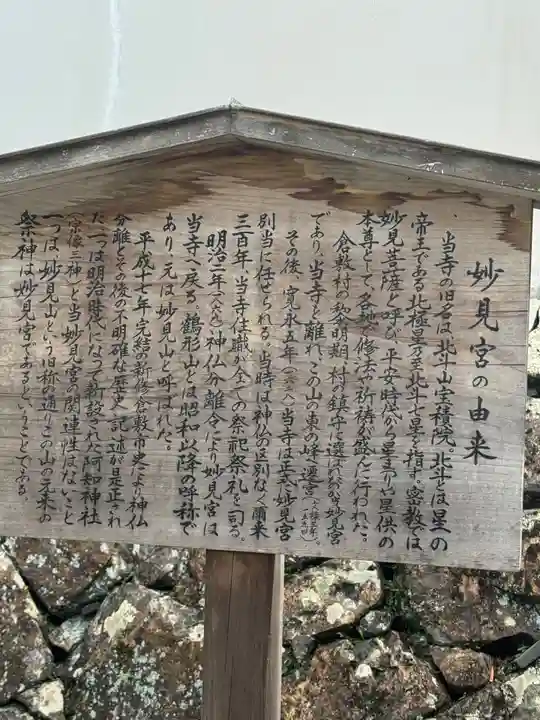 妙見宮の由来
当寺の旧名は北斗山宝積院。北斗とは星への
帝王である北極星乃至北斗七星を指す。密教では
妙見菩薩と呼び、平安時代から星まつりや星供の
本尊として、各地で修法や祈祷が盛んに行われた。
倉敷村の黎明期、村の鎮守に選ばれたのが妙見宮
であり、当寺と離れ、この山の東の峰へ遷宮
その後、寛永五年(一六二八)当寺は正式に妙見宮
別当に任せられる。当時は神仏の区別なく爾来
三百年、当寺住職が全ての祭祀祭礼を司る。
明治二年(一八六九)神仏分離令により妙見宮は
当寺へ戻る。鶴形山とは昭和以降の呼称で
あり、元は妙見山と呼ばれた。
平成十七年完結の新修倉敷市史により神仏
分離とその後の不明確な歴史記述が是正され
た。一つは明治時代になって新設された阿知神社
(宗像三神)と当妙見宮の関連性はないこと
一つは、妙見山という旧称の通りこの山の元来の
祭神は妙見宮であるということである。